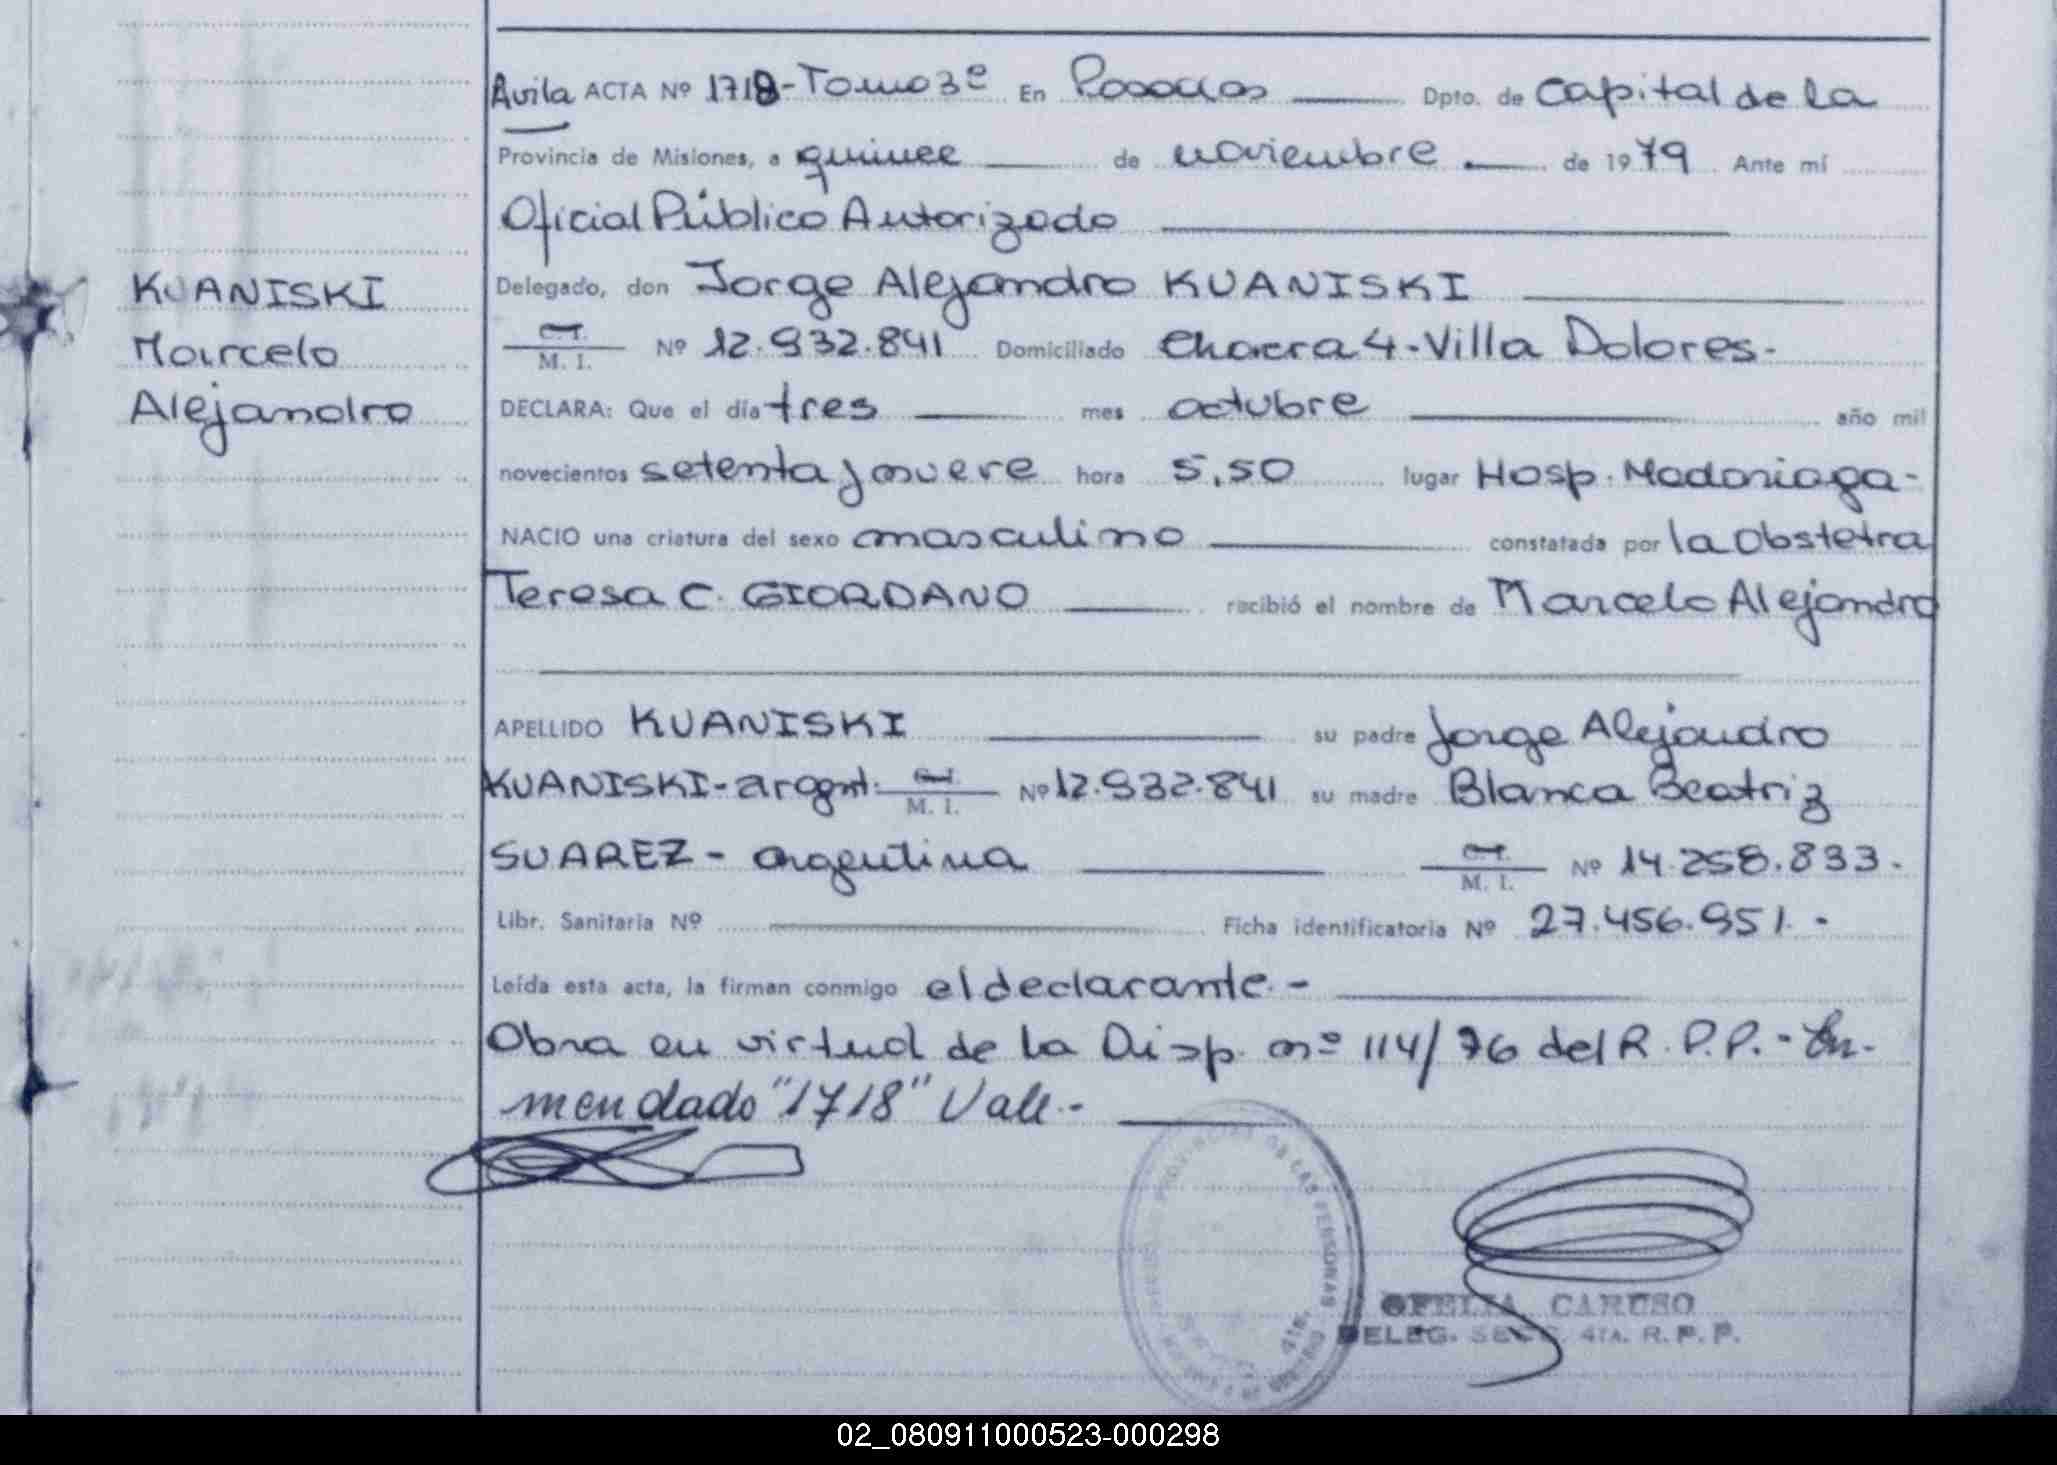 Avila ACTA Nº 1718-Tomo 3º En Posadas Dpto. de Capital de la
Provincia de Misiones, a quince de noviembre de 1979 Ante mí
Oficial Público Autorizado
KUANISKI
Delegado, don Jorge Alejandro KUANISKI
Marcelo
C.I. M. I. Nº 12.932.841 Domiciliado Chacra 4-Villa Dolores-
Alejandro
DECLARA: Que el día tres mes octubre año mil
novecientos setenta y nueve hora 5,50 lugar Hosp. Madariaga-
NACIO una criatura del sexo masculino constatada por la Obstetra
Teresa C. GIORDANO recibió el nombre de Marcelo Alejandro
APELLIDO KUANISKI su padre Jorge Alejandro
KUANISKI-argent. C.I. M. I. Nº 12.932.841 su madre Blanca Beatriz
SUAREZ - argentina C.I. M. I. Nº 14.258.833-
Libr. Sanitaria Nº Ficha identificatoria Nº 27.456.951.-
Leída esta acta, la firman conmigo el declarante.-
Obra en virtud de la Disp. nº 114/76 del R.P.P.- En-
mendado "1718" Vale.-
PROVINCIAL DE LAS PERSONAS
4ta.
OFELIA CARUSO
DELEG. SECC. 4TA. R. P. P.
02_080911000523-000298